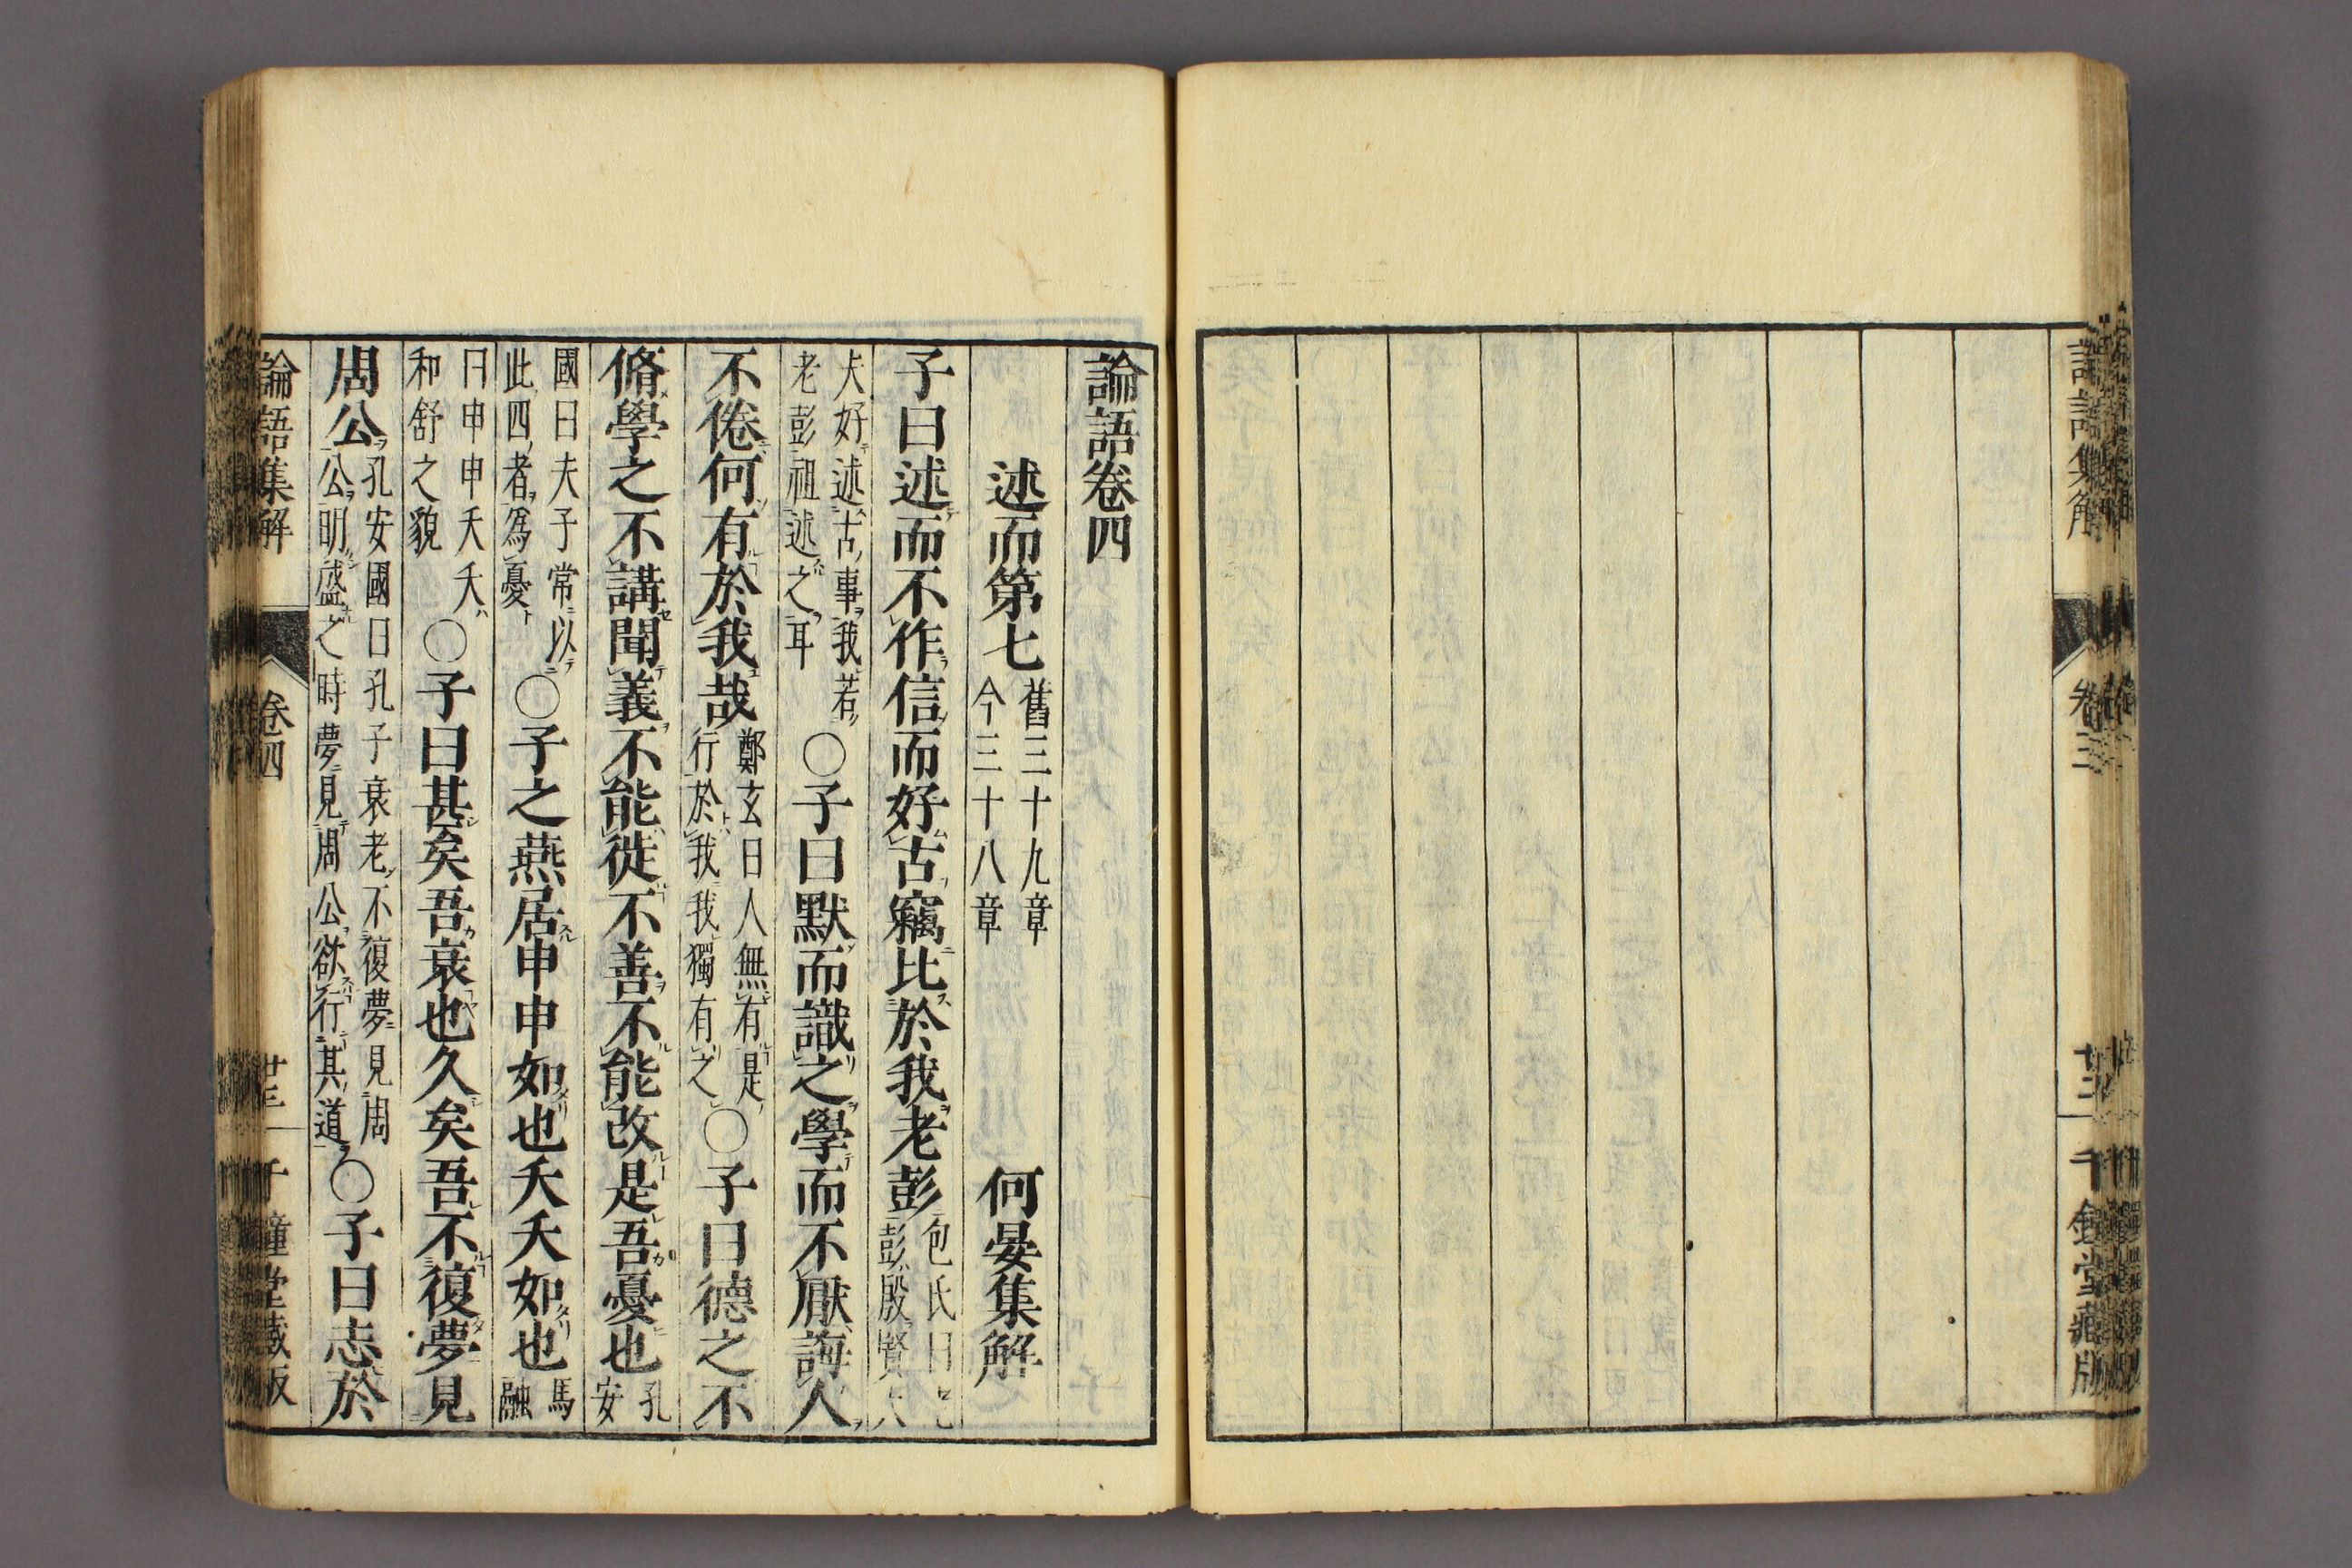 論語集解
卷三
廿二
千鍾堂藏版
論語卷四
述而第七 舊三十九章 今三十八章 何晏集解
子曰述而不作信而好古竊比於我老彭 包氏曰老 彭殷賢大
夫好述古事我若 老彭祖述之耳 ○子曰默而識之學而不厭誨人
不倦何有於我哉 鄭玄曰人無有是 行於我我獨有之 ○子曰德之不
脩學之不講聞義不能徙不善不能改是吾憂也 孔 安
國曰夫子常以 此四者爲憂 ○子之燕居申申如也夭夭如也 馬 融
曰申申夭夭 和舒之貌 ○子曰甚矣吾衰也久矣吾不復夢見
周公 孔安國曰孔子衰老不復夢見周 公明盛之時夢見周公欲行其道 ○子曰志於
論語集解
卷四
廿三
千鍾堂藏版